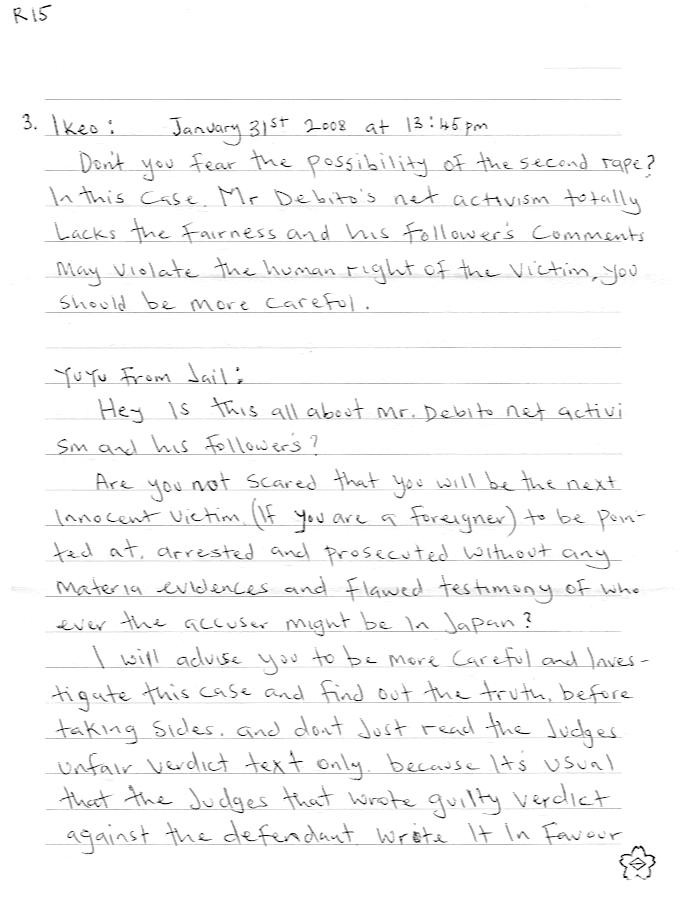 R15
3. Ikeo: January 31st 2008 at 13:45pm
Don't you fear the possibility of the second rape?
In this case, Mr Debito's net activism totally
Lacks the Fairness and his Follower's Comments
May violate the human right of the victim, you
should be more careful.
YuYu From Jail:
Hey Is this all about Mr. Debito net activi
sm and his Follower's?
Are you not scared that you will be the next
Innocent victim, (If you are a foreigner) to be poin-
ted at, arrested and prosecuted without any
Materia evidences and flawed testimony of who
ever the accuser might be In Japan?
I will advise you to be more careful and Inves-
tigate this case and find out the truth, before
taking sides. and dont Just read the Judges
unfair verdict text only. because It's usual
that the Judges that wrote guilty verdict
against the defendant wrote It In Favour